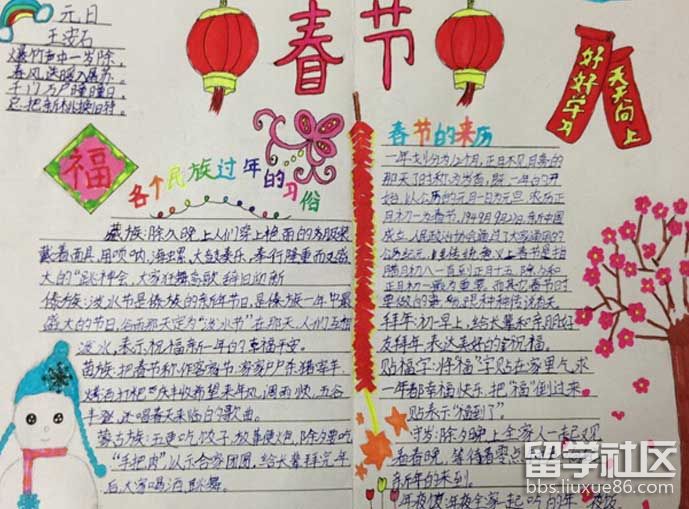 元日
王安石
爆竹声中一岁除，
春风送暖入屠苏。
千门万户曈曈日，
总把新桃换旧符。
春节
好好学习
天天向上
福
各个民族过年的习俗
藏族：除夕晚上人们穿上艳丽的
戴着面具，用唢呐，海螺，大鼓奏乐，举行隆重而又盛
大的“跳神会，大家狂舞高歌
傣族：泼水节是傣族的新年节日，是傣族一年中最
盛大的节日，
定为“泼水节”在那天，人们互相
泼水，表示祝福新一年的幸福平安。
苗族：把春节称作客家节，家家户户杀猪宰羊，
烤酒打粑庆丰收希望来年风调雨顺，五谷
丰登，还唱着
的歌曲。
蒙古族：五更吃饺子，放鞭炮，除夕要吃
“手把肉”以示合家团圆，给长辈拜完年
后，大家喝酒，跳舞。
春节的来历
一年划分为12个月，
那天了时称为岁首，
一年的开
始，以公历的元月一日为元旦，农历正
月初一为春节，1949年9月27日，新中国
成立，人民政治协商会议通过了
春节是指
腊月初八一直到正月十五，除夕和
正月初一最为重要，而其它春节时
要做的事
拜年：初一早上，给长辈和亲朋好
友拜年，表达美好的祝福。
贴福字：将“福”字贴在家里乞求
一年都幸福快乐，把“福”倒过来
贴表示“福到了”。
守岁：除夕晚上全家人一起
看春晚，等待着零点
新年的来到。
年夜饭：年夜全家一起吃的年夜饭
留学社区
bbs.liuxue86.com